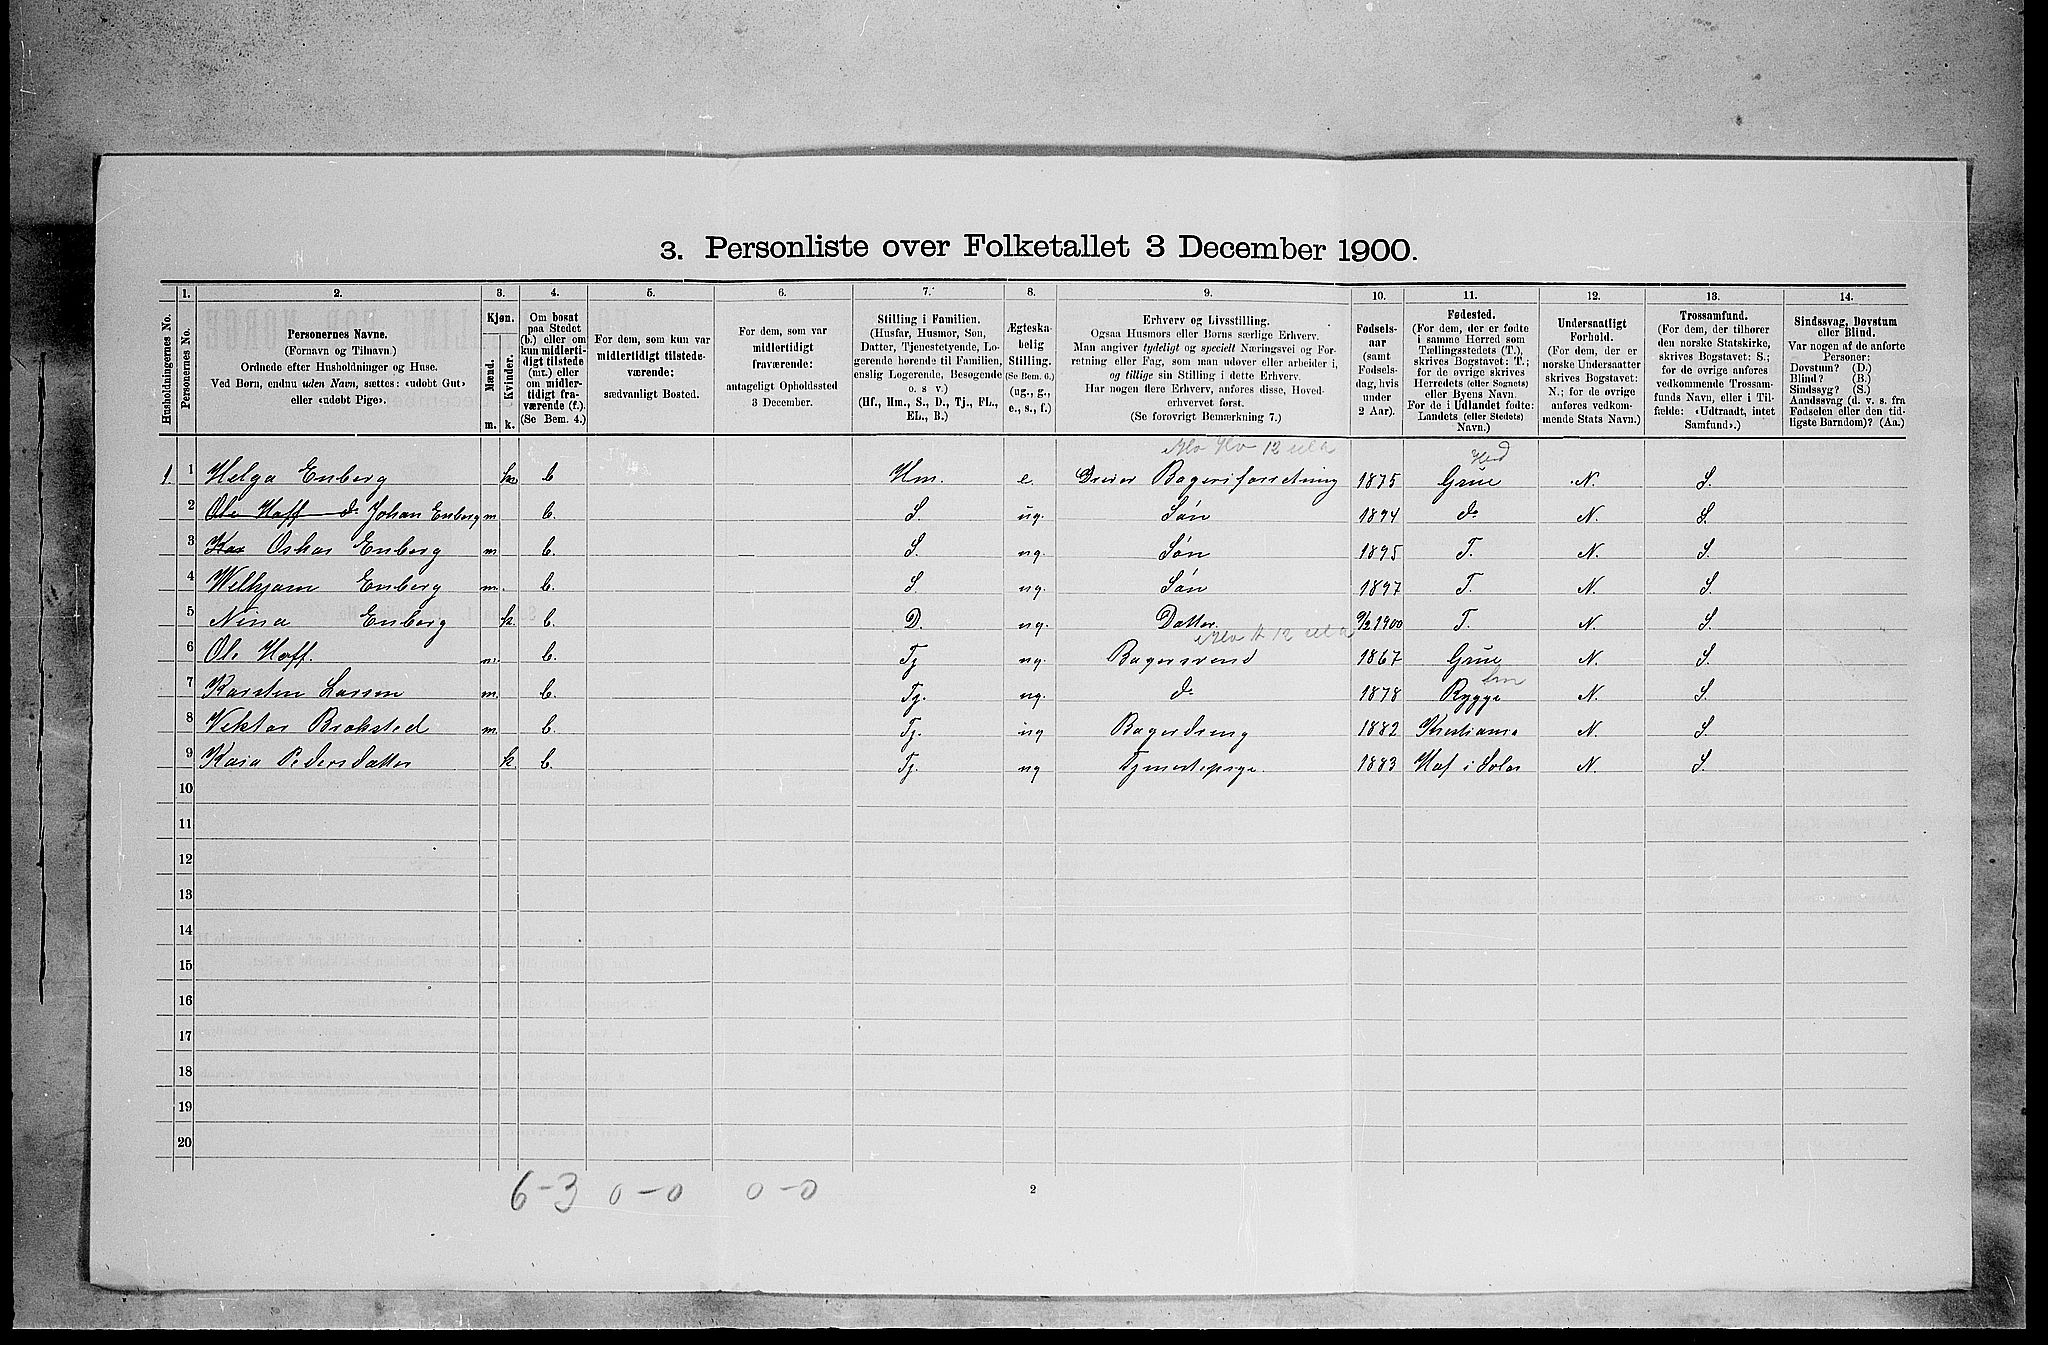 3. Personliste over Folketallet 3 December 1900.
1. 2. 3. 4. 5. 6. 7. 8. 9. 10. 11. 12. 13. 14.
Husholdningernes No.
Personernes No.
Personernes Navne.
(Fornavn og Tilnavn.)
Ordnede efter Husholdninger og Huse.
Ved Børn, endnu uden Navn, sættes: «udøbt Gut»
eller «udøbt Pige».
Kjøn.
Mænd.
Kvinder.
m. k.
Om bosat
paa Stedet
(b.) eller om
kun midlerti-
digt tilstede
(mt.) eller
om midler-
tidigt fra-
værende (f.).
(Se Bem. 4.)
For dem, som kun var
midlertidigt tilstede-
værende:
sædvanligt Bosted.
For dem, som var
midlertidigt
fraværende:
antageligt Opholdssted
3 December.
Stilling i Familien.
(Husfar, Husmor, Søn,
Datter, Tjenestetyende, Lo-
gerende hørende til Familien,
enslig Logerende, Besøgende
o. s v.)
(Hf., Hm., S., D., Tj., FL.,
EL., B.)
Ægteska-
belig
Stilling.
(Se Bem. 6.)
(ug., g.,
e., s., f.)
Erhverv og Livsstilling.
Ogsaa Husmors eller Børns særlige Erhverv.
Man angiver tydeligt og specielt Næringsvei og For-
retning eller Fag, som man udøver eller arbeider i,
og tillige sin Stilling i dette Erhverv.
Har nogen flere Erhverv, anføres disse, Hoved-
erhvervet først.
(Se forøvrigt Bemærkning 7.)
Fødsels-
aar
(samt
Fødsels-
dag, hvis
under
2 Aar).
Fødested.
(For dem, der er fødte
i samme Herred som
Tællingsstedets (T.),
skrives Bogstavet: T.;
for de øvrige skrives
Herredets (eller Sognets)
eller Byens Navn.
For de i Udlandet fødte:
Landets (eller Stedets)
Navn.)
Undersaatligt
Forhold.
(For dem, der er
norske Undersaatter
skrives Bogstavet:
N.; for de øvrige
anføres vedkom-
mende Stats Navn.)
Trossamfund.
(For dem, der tilhører
den norske Statskirke,
skrives Bogstavet: S.;
for de øvrige anføres
vedkommende Trossam-
funds Navn, eller i Til-
fælde: «Udtraadt, intet
Samfund».)
Sindssvag, Døvstum
eller Blind.
Var nogen af de anførte
Personer:
Døvstum? (D.)
Blind? (B.)
Sindssyg? (S.)
Aandssvag (d. v. s. fra
Fødselen eller den tid-
ligste Barndom)? (Aa.)
Hed
1. 1 Helga Enberg b Hm. e. Bageriforretning 1875 Grue N. S.
2 Ole Hoff do Johan Enberg m b. S. ug. Søn 1894 do N. S.
3 Oskar Enberg m b. S. ug. Søn 1895 T. N. S.
4 Welhjam Enberg m. b. S ug. Søn 1897 T. N. S.
5 Nina Enberg k b. D. ug. Datter 1900 T. N. S.
6 Ole Hoff. m. b. Tj ug. Bagersvend 1867 Grue N. S.
7 Karsten Larsen m. b. Tj. ug. do 1878 Rygge N. S.
8 Vektor Broksted m. b. Tj. ug Bagerdreng 1882 Kristiania N. S.
9 Kaia Pedersdatter k. b. Tj. ug Tjenestepige. 1883 Hof i Solør N. S.
10
11
12
13
14
15
16
17
18
19
20
6-3 0-0 0-0
2